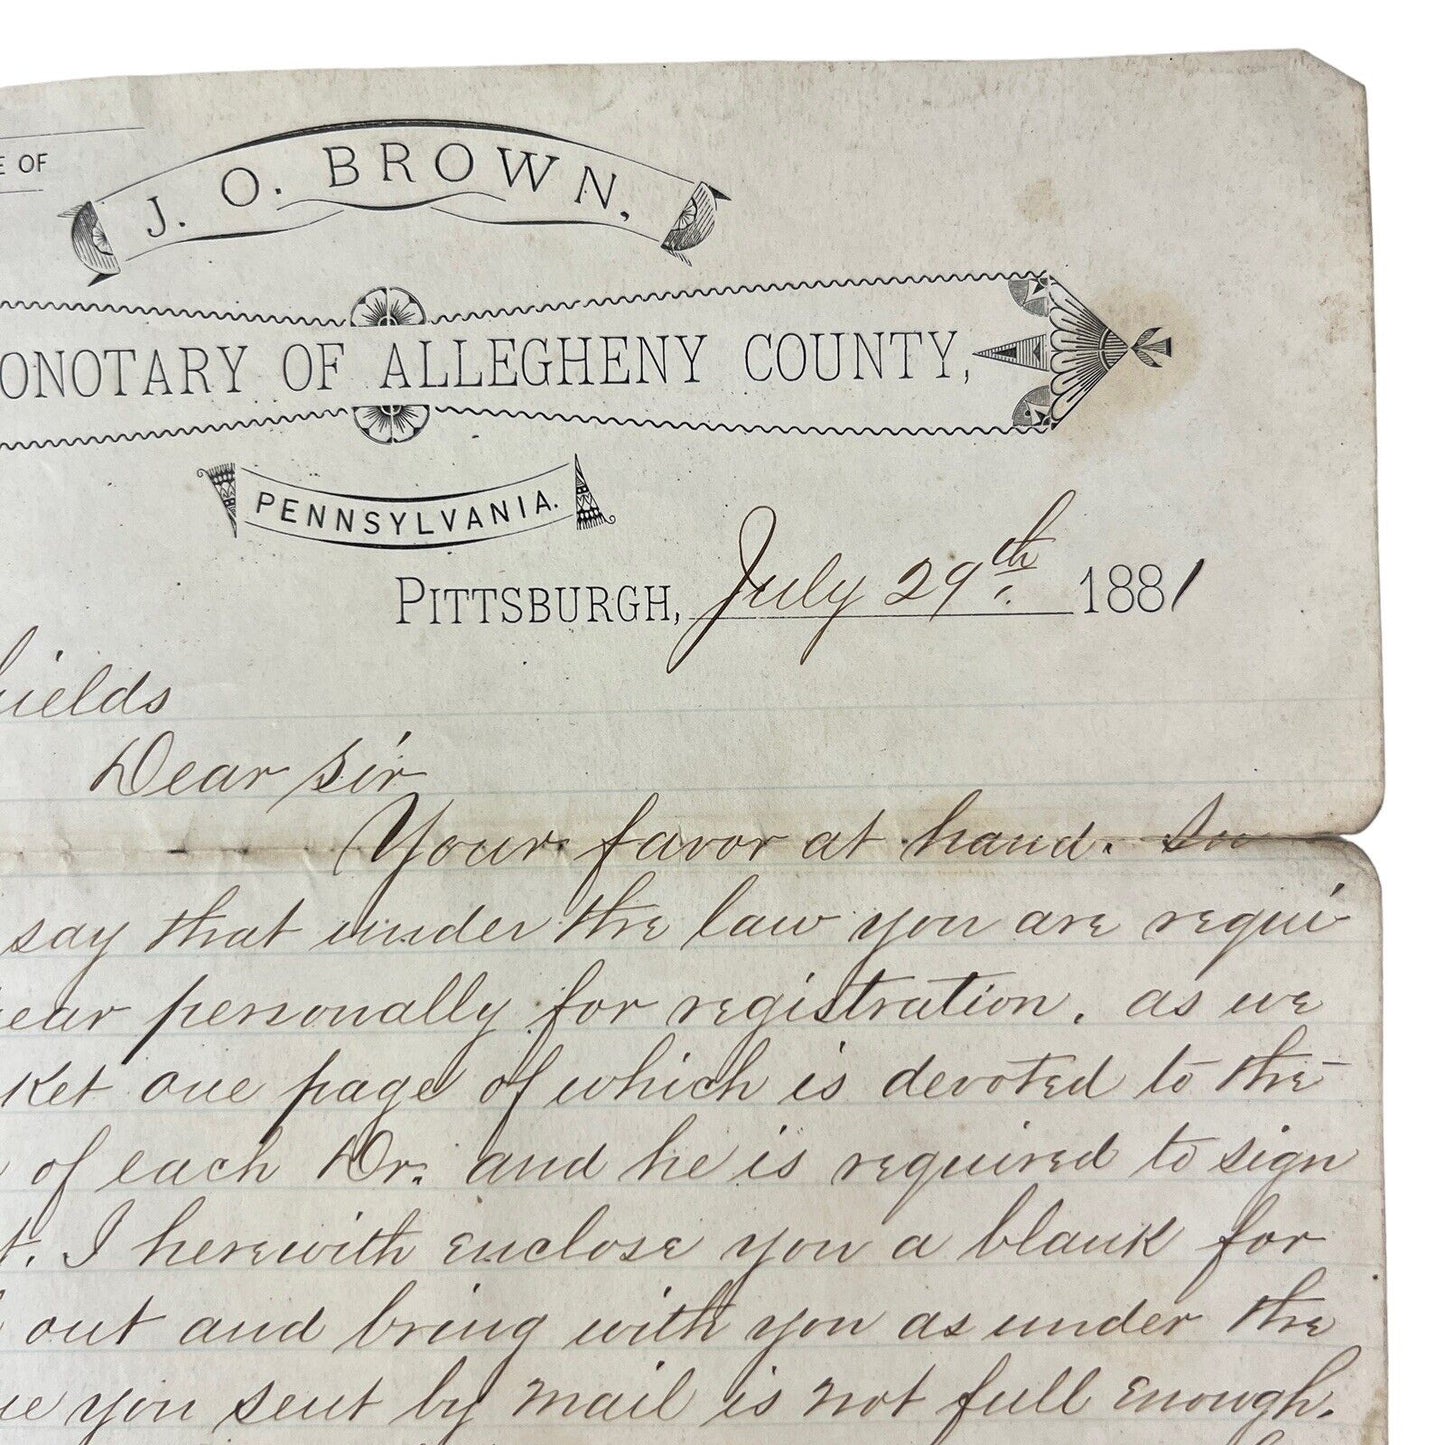 E OF
J. O. BROWN,
ONOTARY OF ALLEGHENY COUNTY,
PENNSYLVANIA.
PITTSBURGH, July 29th. 1881
hields
Dear Sir
Your favor at hand. In
say that under the law you are requi
ear personally for registration. as we
ket one page of which is devoted to the
of each Dr. and he is required to sign
t. I herewith enclose you a blank for
out and bring with you as under the
ue you sent by mail is not full enough.